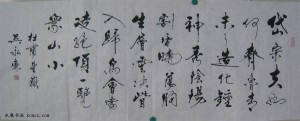 岱宗夫如
何齊魯青
未了造化鍾
神秀陰陽
割昏曉盪胸
生層雲決眥
入歸鳥會當
凌絕頂一覽
眾山小
杜甫望嶽